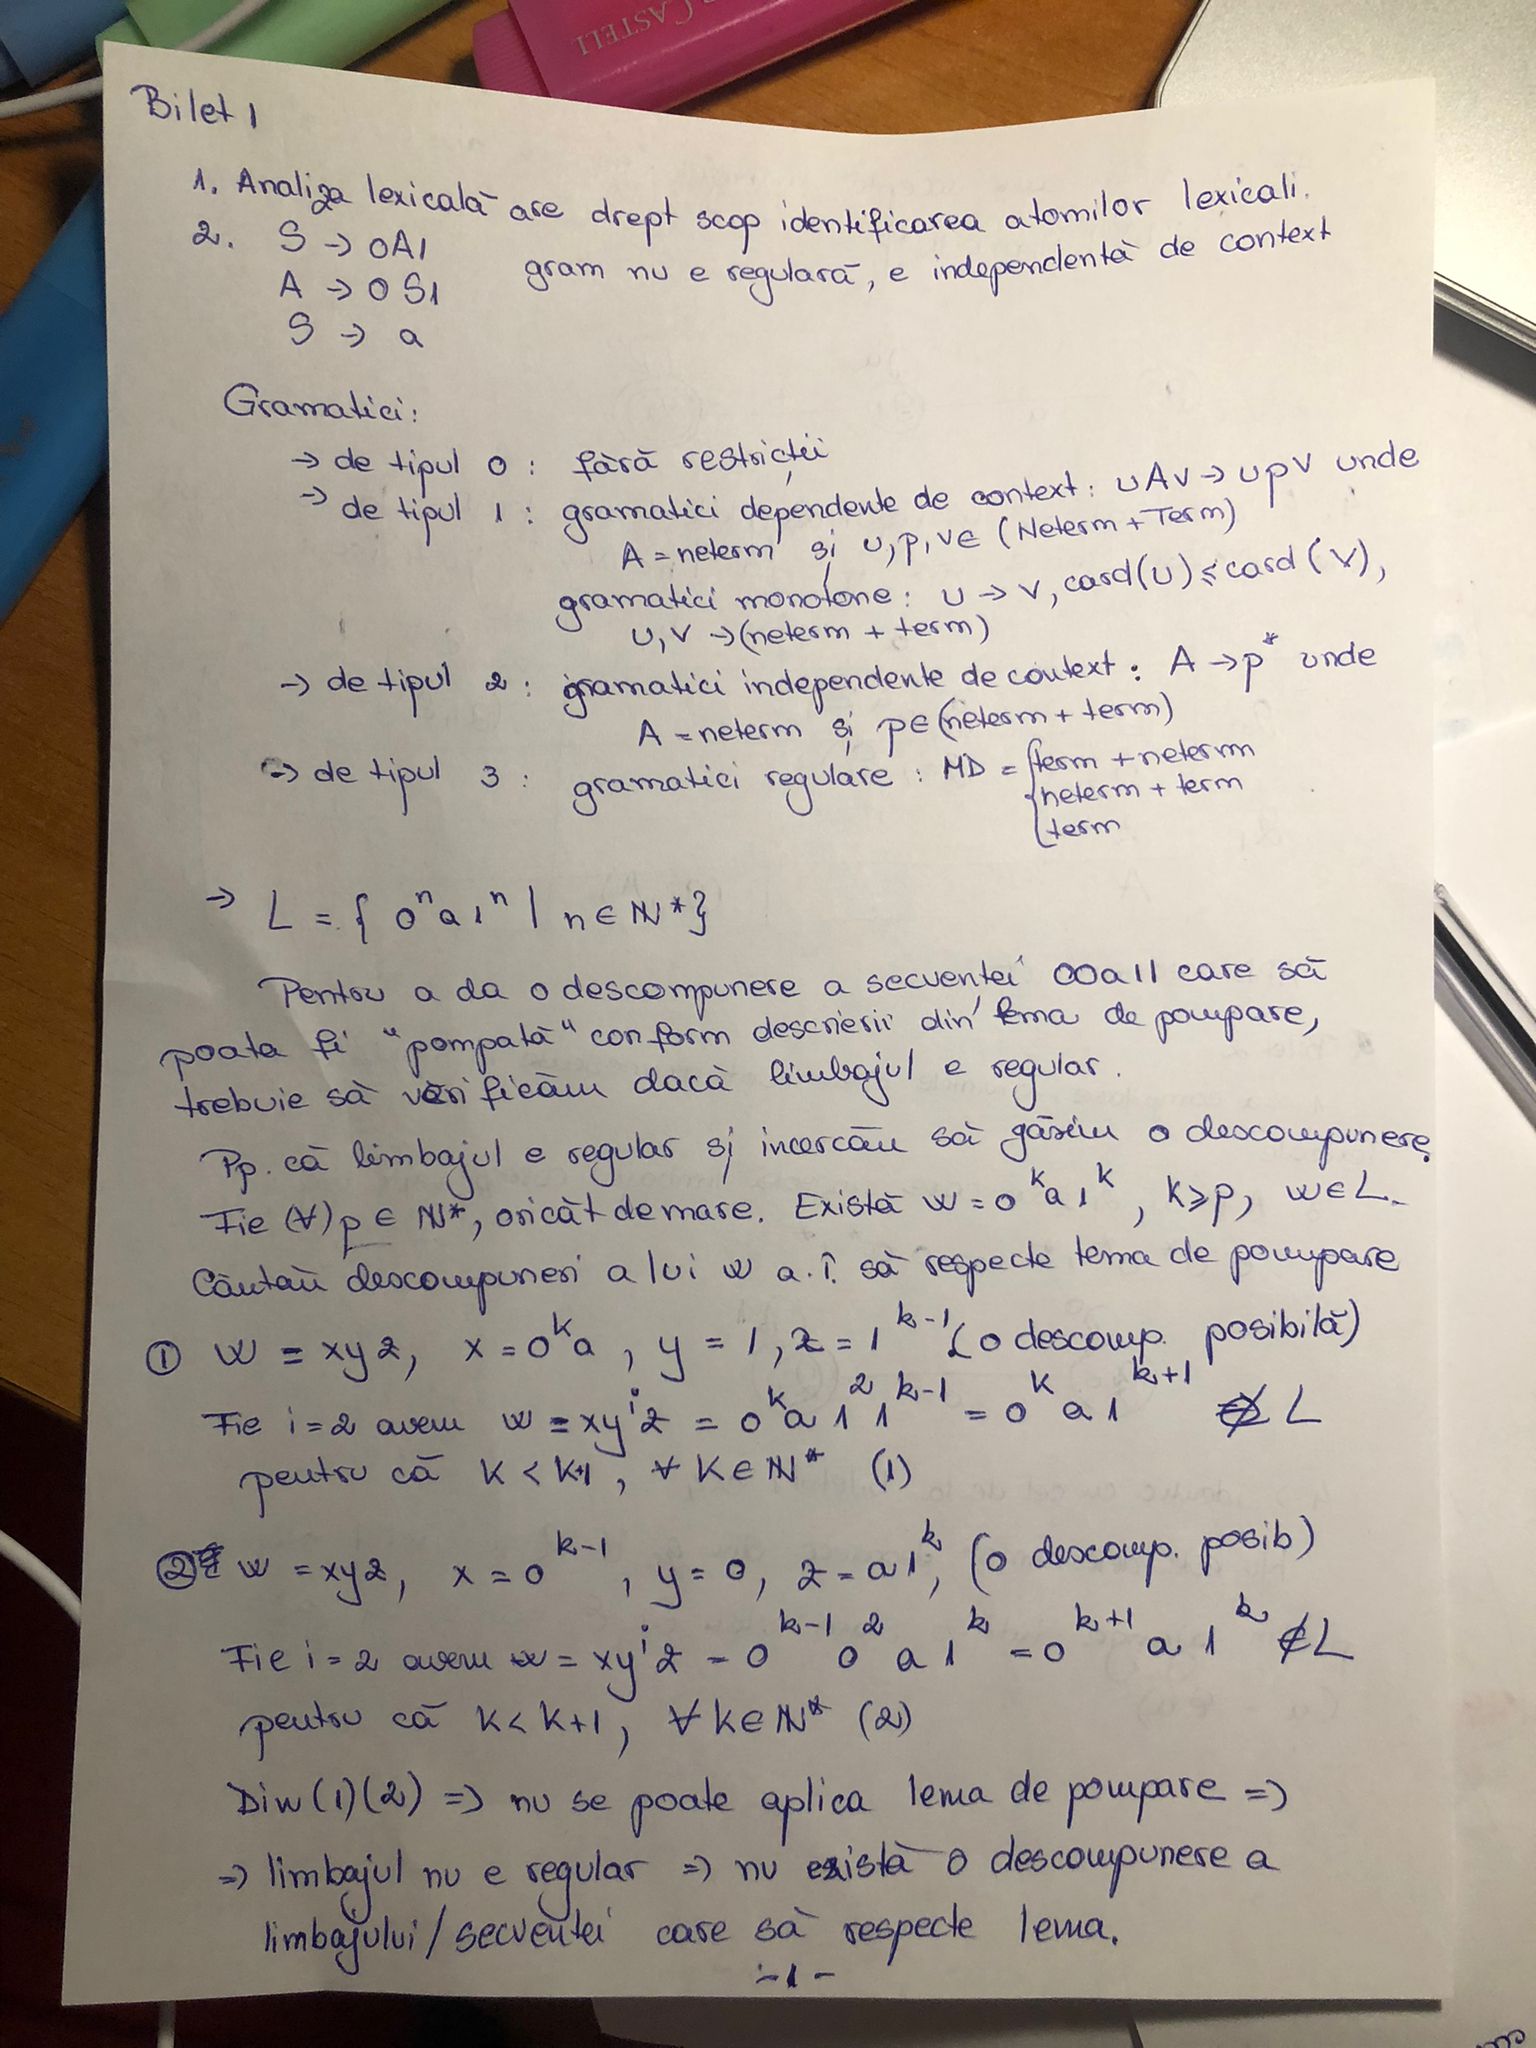 CASTELL
Bilet 1
1. Analiza lexicală are drept scop identificarea atomilor lexicali.
2. S → 0A1 gram nu e regulară, e independentă de context
A → 0S1
S → a
Gramatici:
→ de tipul 0 : fără restricții
→ de tipul 1 : gramatici dependente de context: uAv → upv unde
A = neterm și u,p,v∈ (Neterm + Term)
gramatici monotone: u → v, card(u) ≤ card(v),
u,v → (neterm + term)
→ de tipul 2 : gramatici independente de context: A → p* unde
A = neterm și p∈(neterm + term)
→ de tipul 3 : gramatici regulare : MD = { term + neterm
neterm + term
term
→ L = { 0ⁿa1ⁿ | n ∈ ℕ* }
Pentru a da o descompunere a secvenței 00a11 care să
poata fi "pompată" conform descrierii din lema de pompare,
trebuie să verificăm dacă limbajul e regular.
Pp. că limbajul e regular și incercăm să găsim o descompunere.
Fie (∀) p ∈ ℕ*, oricât de mare. Există w = 0ᵏa1ᵏ, k ≥ p, w ∈ L.
Căutăm descompuneri a lui w a.î. să respecte lema de pompare
① w = xyz, x = 0ᵏa, y = 1, z = 1ᵏ⁻¹ (o descomp. posibilă)
Fie i = 2 avem w = xyⁱz = 0ᵏa1²1ᵏ⁻¹ = 0ᵏa1ᵏ⁺¹ ∉ L
pentru că k < k+1, ∀ k ∈ ℕ* (1)
② w = xyz, x = 0ᵏ⁻¹, y = 0, z = a1ᵏ, (o descomp. posib)
Fie i = 2 avem w = xyⁱz = 0ᵏ⁻¹0²a1ᵏ = 0ᵏ⁺¹a1ᵏ ∉ L
pentru că k < k+1, ∀ k ∈ ℕ* (2)
Din (1)(2) => nu se poate aplica lema de pompare =>
=> limbajul nu e regular => nu există o descompunere a
limbajului/secvenței care să respecte lema.
-1-